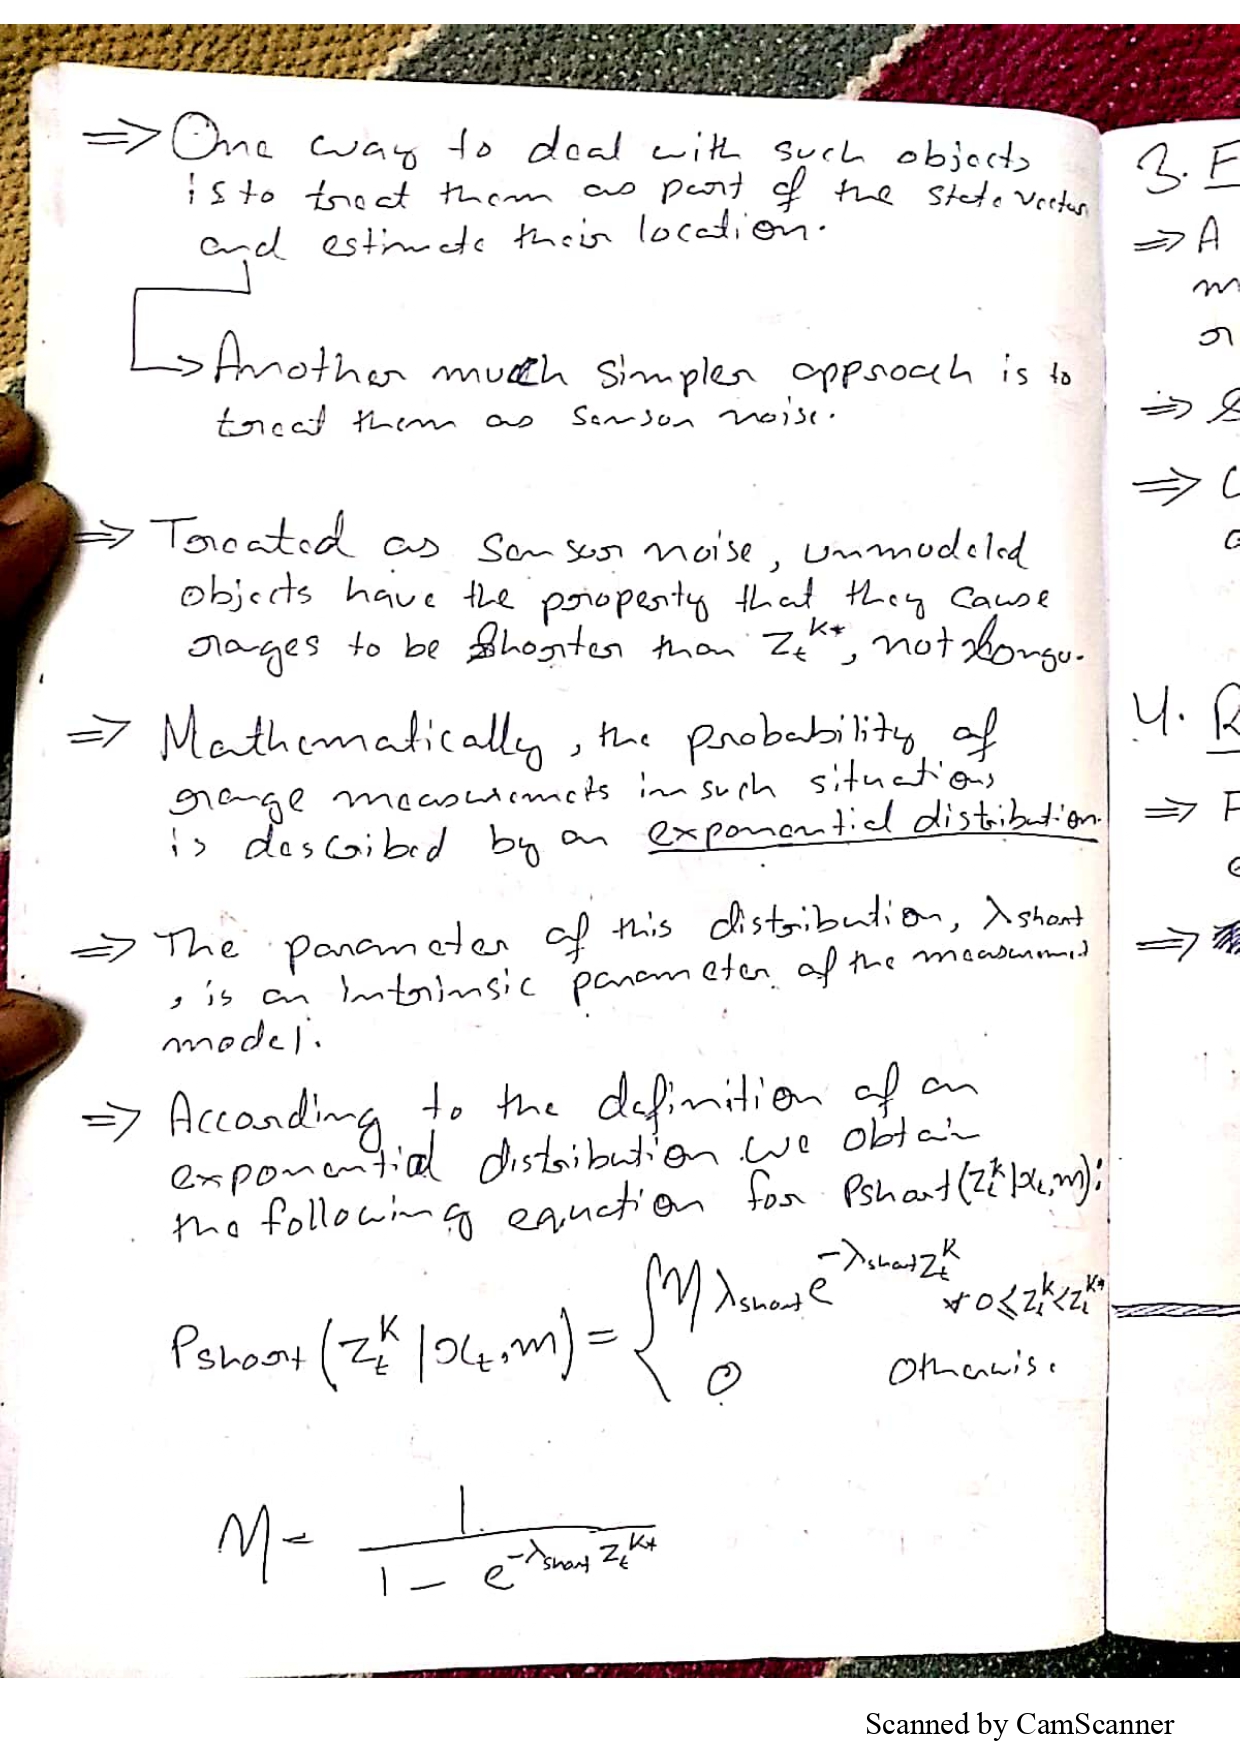 ⇒ One way to deal with such objects
is to treat them as part of the state vector
and estimate their location.
→ Another much simpler approach is to
treat them as sensor noise.
⇒ Treated as sensor noise, unmodeled
objects have the property that they cause
ranges to be shorter than z_t^{k*}, not longer.
⇒ Mathematically, the probability of
range measurements in such situations
is described by an exponential distribution.
⇒ The parameter of this distribution, λ short
, is an intrinsic parameter of the measurement
model.
⇒ According to the definition of an
exponential distribution we obtain
the following equation for Pshort(z_t^k | x_t, m):
P_short (z_t^k | x_t, m) = { η λ_short e^{-λ_short z_t^k} ∀ 0 ≤ z_t^k < z_t^{k*}
0 otherwise
η = 1 / (1 - e^{-λ_short z_t^{k*}})
3. F
⇒ A
m
or
⇒ S
⇒ C
4. R
⇒ F
⇒
Scanned by CamScanner